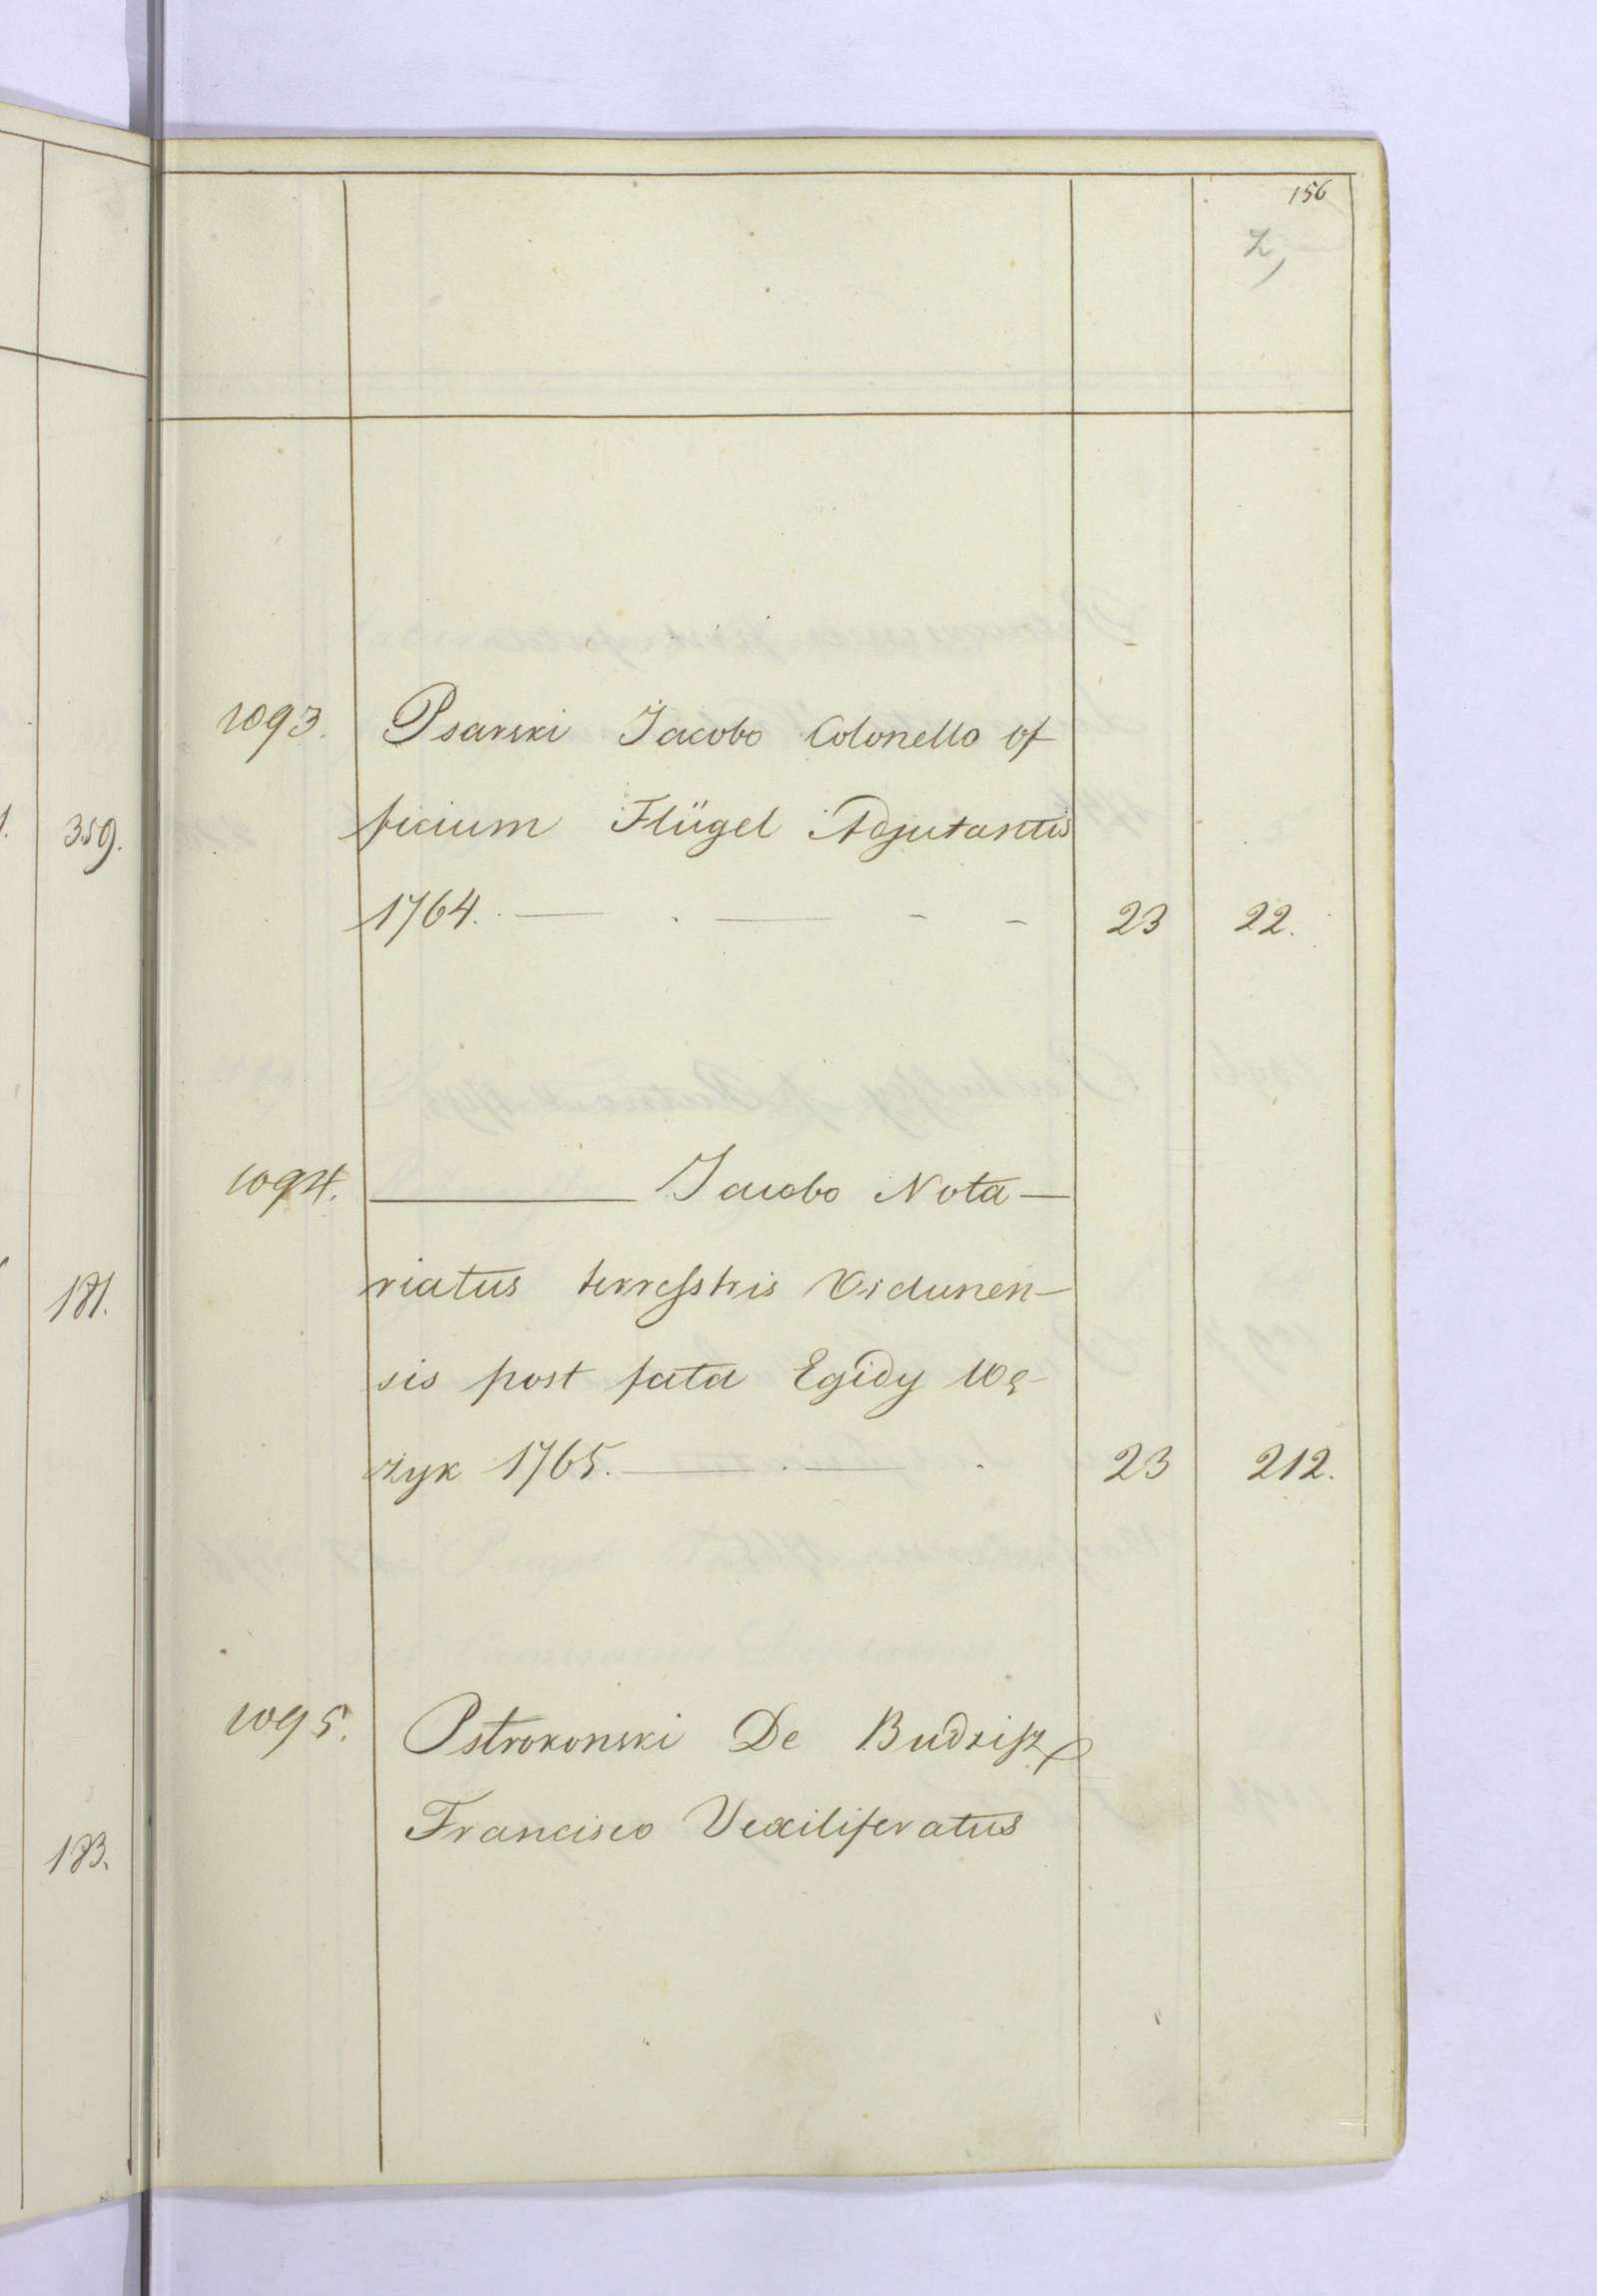 156
359.
181.
183.
1093. Psarski Jacobo Colonello of
ficium Flügel Adjutantis
1764. — . — - - 23 22.
1094. ——— Jacobo Nota—
riatus terresstris Vidunen—
sis post fata Egidy Wę-
żyk 1765. — . — . 23 212.
1095. Pstrokonski De Budzisz
Francisco Vexiliferatus